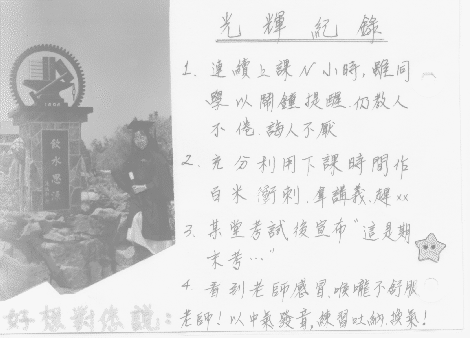 光輝紀錄
1. 連續上課N小時,雖同
學以鬧鐘提醒,仍教人
不倦.誨人不厭
2. 充分利用下課時間作
百米衝刺.拿講義.趕××
3. 某堂考試後宣布"這是期
末考…"
4. 看到老師感冒.喉嚨不舒服
好想對您說:老師!以中氣發音,練習吐納.換氣!
1896
飲水思